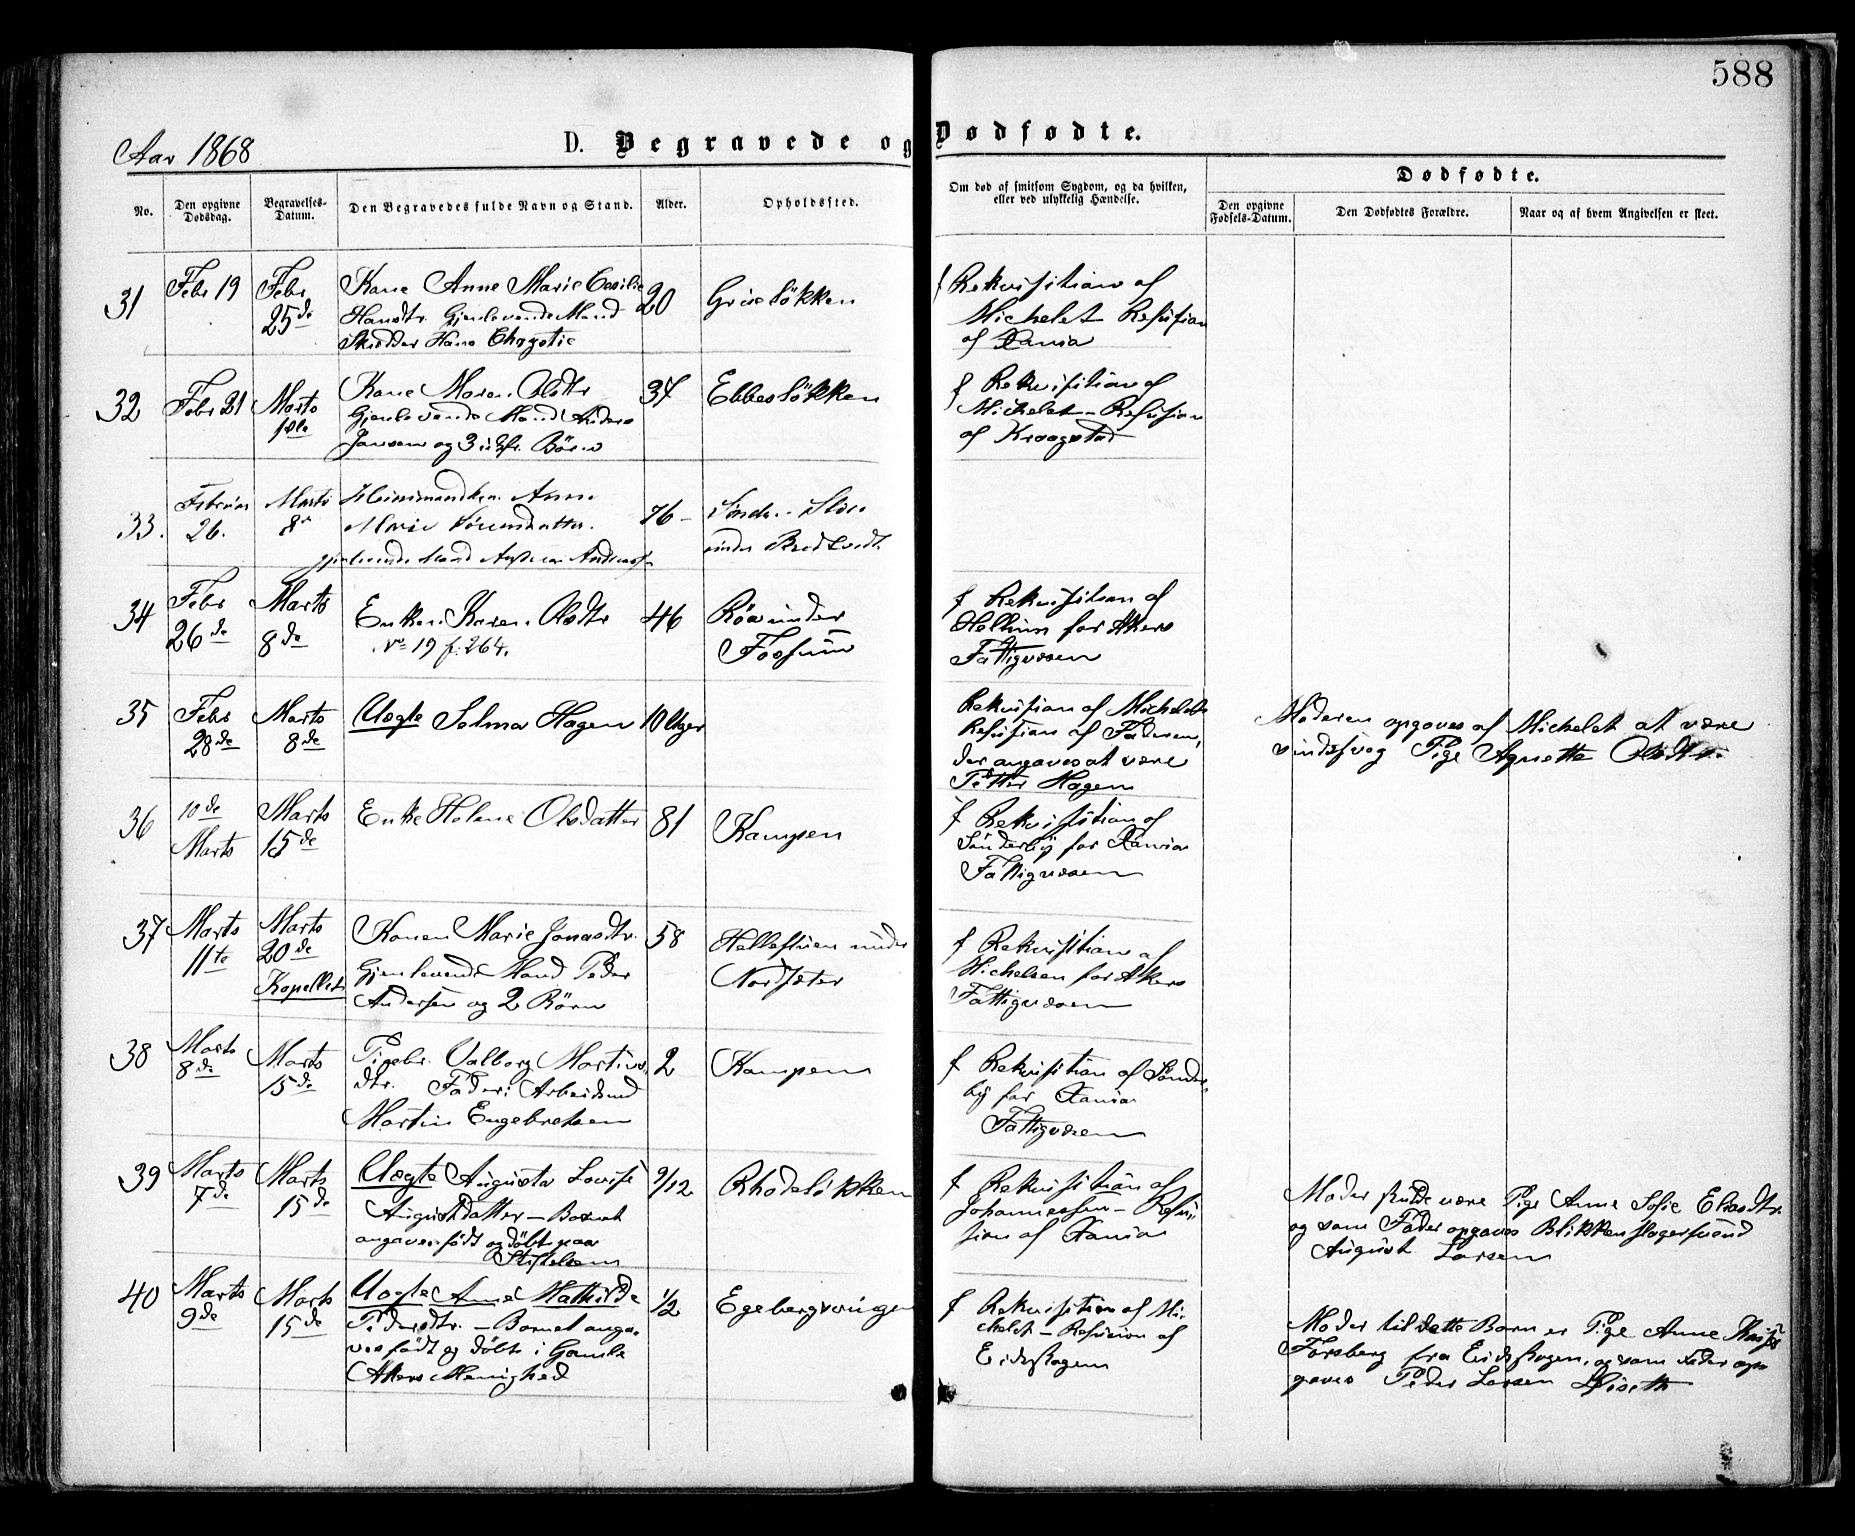 588
Aar 1868
D. Begravede og Dødfødte.
No.
Den opgivne Dødsdag.
Begravelses-Datum.
Den Begravedes fulde Navn og Stand.
Alder.
Opholdssted.
Om død af smitsom Sygdom, og da hvilken, eller ved ulykkelig Hændelse.
Dødfødte.
Den opgivne Fødsels-Datum.
Den Dødfødtes Forældre.
Naar og af hvem Angivelsen er skeet.
31
Febr 19
Febr 25de
Kone Anne Marie Cecilie
Hansdtr. Gjenlevende Mand
Skrædder Hans
20
Grüneløkken
f Rekvisition af
Michelet Refusion
af Xania
32
Febr 21
Marts 1ste
Kone Maren Olsdtr
Gjenlevende Mand Anders
Jensen og 3 Børn
37
Ebbesløkken
f Rekvisition af
Michelet - Refusion
af Kraagstad
33.
Februar 26.
Marts 8de
Huusmandskon. Anne
Marie Sørensdatter.
gjenlevende Mand Andreas
76
under Bredtvedt.
34
Febr 26de
Marts 8de
Enken Karen Olsdtr
No 19 f. 264.
46
Røa under
Fossum
f Rekvisition af
for Akers
Fattigvæsen
35
Febr 28de
Marts 8de
Uægte Selma Hagen
10 Uger
Rekvisition af Michelet
Refusion af Faderen,
der angaves at være
Petter Hagen
Moderen opgaves af Michelet at være
sindssvag Pige Agnette Olsdtr.
36
10de Marts
Marts 15de
Enke Helene Olsdatter
81
Kampen
f Rekvisition af
Sønderby for Xania
Fattigvæsen
37
Marts 11te
Marts 20de
Kapellet
Konen Marie Jonasdtr.
Gjenlevende Mand Peder
Andersen og 2 Børn
58
under
Nordseter
f Rekvisition af
Michelsen for Akers
Fattigvæsen
38
Marts 8de
Marts 15de
Pigebr. Valborg Martins
dtr. Fader: Arbeidsmd
Martin Engebretsen
2
Kampen
f Rekvisition af Sønder
by for Xania
Fattigvæsen
39
Marts 7de
Marts 15de
Uægte Augusta Lovise
Augustdatter - Barnet
angaves født og døbt paa
Stiftelsen
9/12
Rhodeløkken
f Rekvisition af
Johannessen - Refu-
sion af Xania
Moder skulde være Pige Anne Sofie Eliasdtr.
og som Fader opgaves Blikkenslagersvend
August Larsen
40
Marts 9de
Marts 15de
Uægte Anne Mathilde
Pedersdtr. - Barnet anga-
ves født og døbt i Gamle
Akers Menighed
1/2
Egebergveringen
f Rekvisition af Mi-
chelet - Refusion af
Eidskogen
Moder til dette Barn er Pige Anne
Forsberg fra Eidskogen, og som Fader op
gaves Peder Larsen